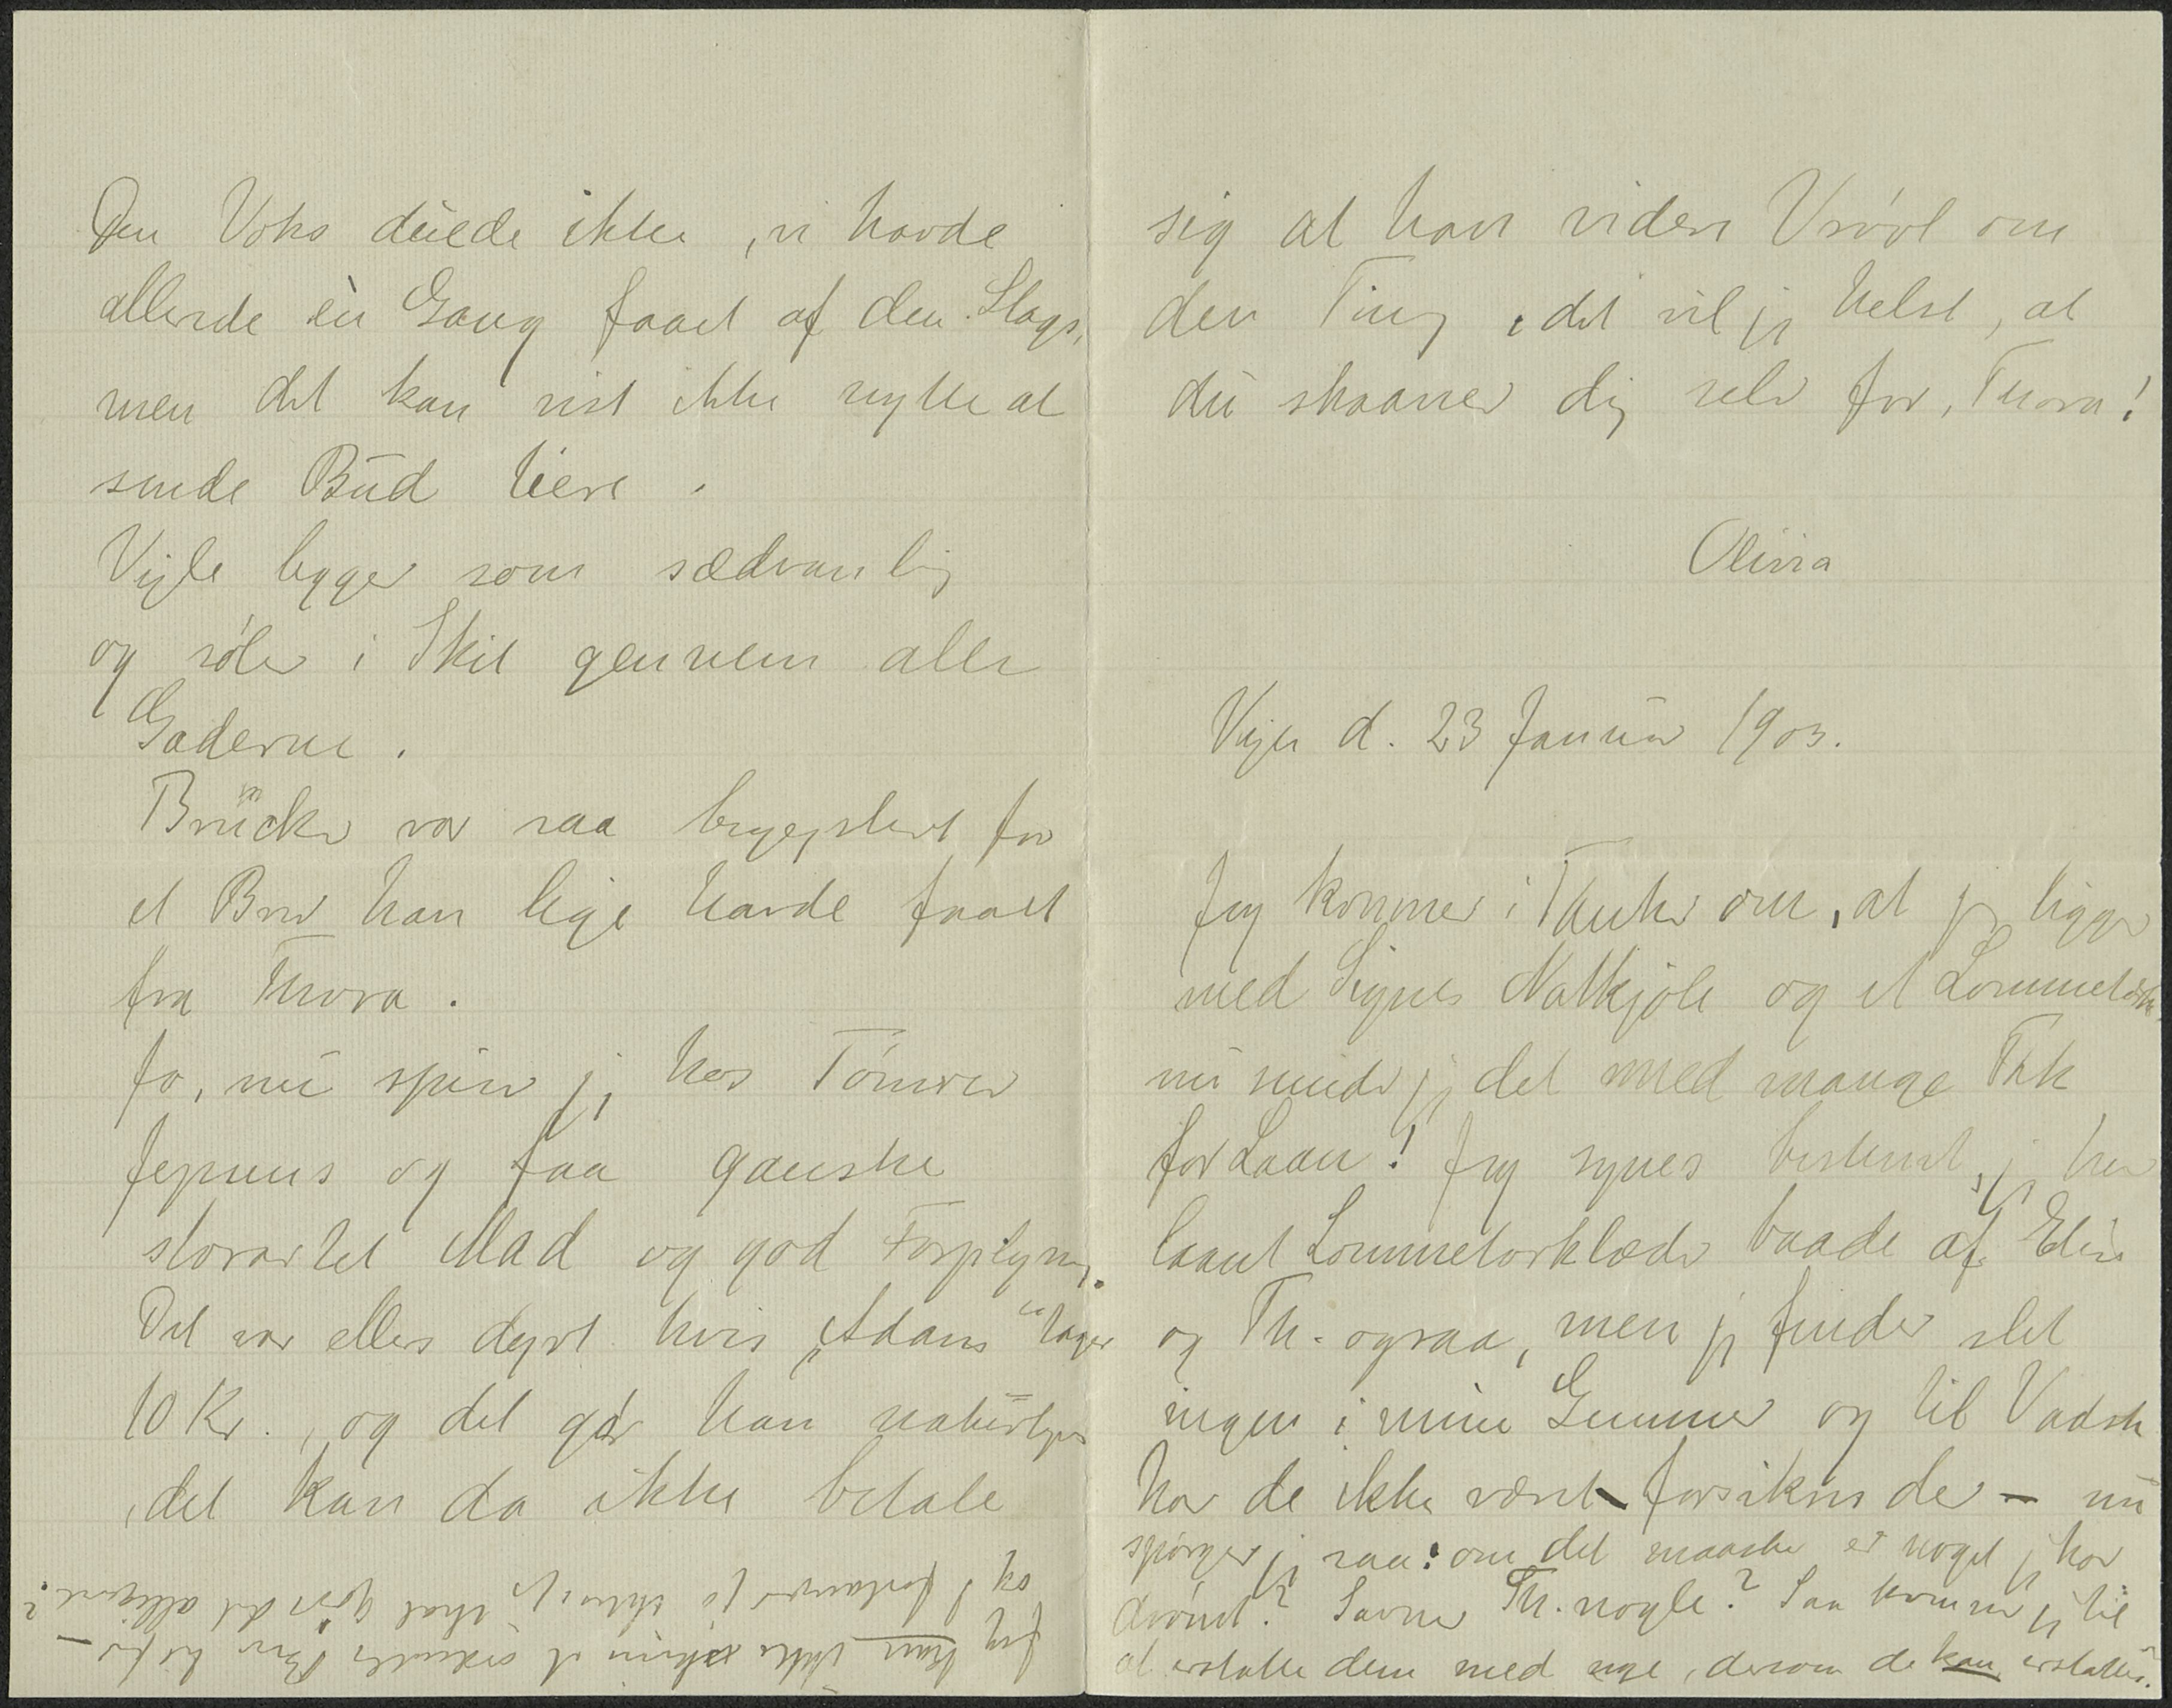 Vejle d. 23 Januar 1903.
Jeg kommer i Tanker om, at jeg ligger
med Signes Natkjole og et Lommetørkl.
nu sender jeg det med mange Tak
for Laan! Jeg synes bestemt, jeg har
laant Lommetørklæder baade af Elin
og Th. ogsaa, men jeg finder slet
ingen i mine Gemmer og til Vadsk
har de ikke været forsikres der – nu
spørger jeg saa: om det maaske er noget jeg har
drømt? Savner Th. nogle? Saa kommer jeg til
at erstatte dem med nye, dersom de kan erstattes.
Den Voks duede ikke, vi havde
allerede èn Gang faaet af den Slags,
men det kan vist ikke nytte at
sende Bud tiere.
Vejle ligger som sædvanlig
og søler i Skit gennem alle
Gaderne.
Brücker var saa begejstret for
et Brev han lige havde faaet
fra Thora.
Jo, nu spiser jeg hos Tømrer
Jepsens og faar ganske
storartet Mad og god Forplejning.
Det var ellers dyrt hvis „Adams" tager
10 Kr., og det gør han naturligvis
, det kan da ikke betale
sig at have videre Vrøvl om
den Ting, det vil jeg helst, at
du skaaner dig selv for, Thora!
Olivia
Jeg kan ikke skrive et ordentlig Brev
og I forlanger jo ikke jeg skal gøre det alligevel?